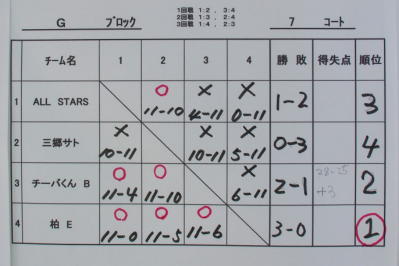 1回戦 1:2 , 3:4
2回戦 1:3 , 2:4
3回戦 1:4 , 2:3
G ブロック 7 コート
チーム名 1 2 3 4 勝敗 得失点 順位
1 ALL STARS ○ × × 1-2 3
11-10 4-11 0-11
2 三郷サト × × × 0-3 4
10-11 10-11 5-11
3 チーバくん B ○ ○ × 2-1 28-25 2
11-4 11-10 6-11 +3
4 柏 E ○ ○ ○ 3-0 1
11-0 11-5 11-6